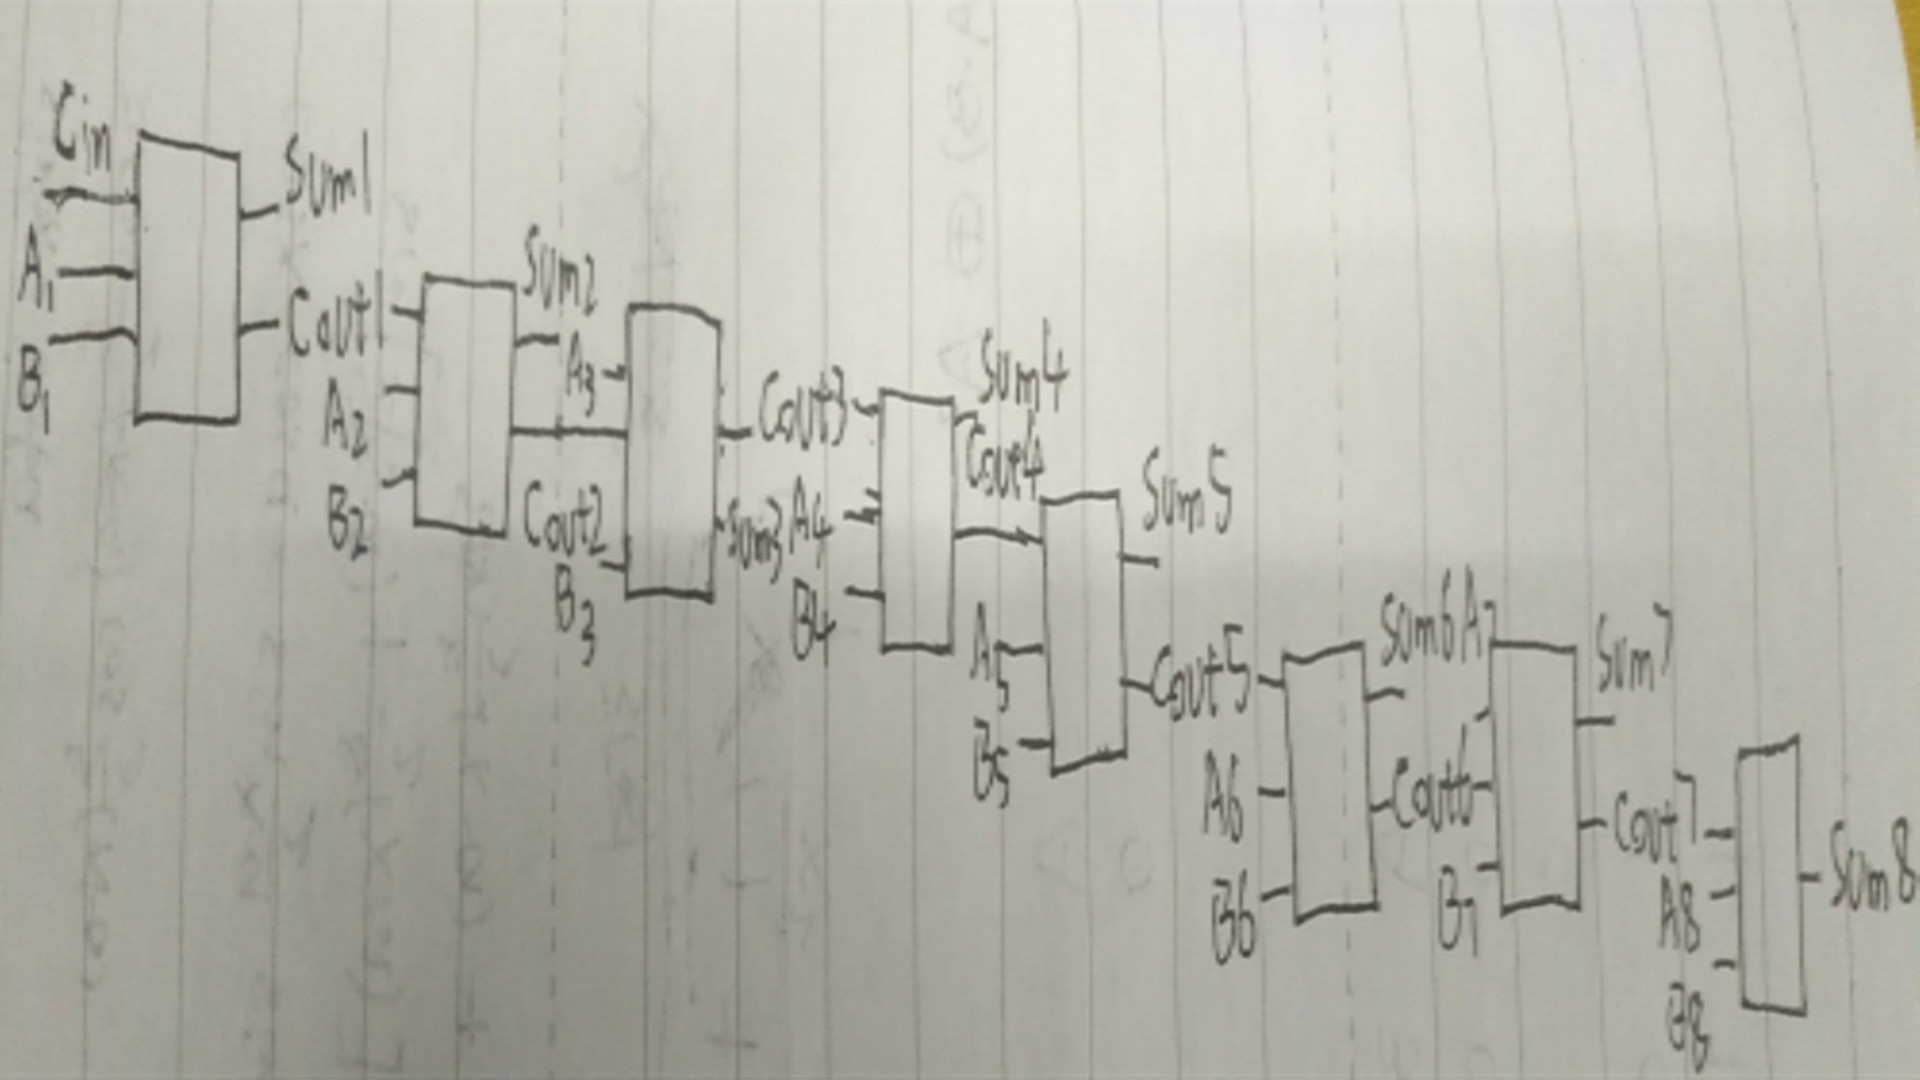 Cin
Sum1
A1
B1
Cout1
A2
B2
Sum2
A3
Cout2
B3
Cout3
Sum3
A4
B4
Sum4
Cout4
A5
B5
Sum5
Cout5
A6
B6
Sum6
A7
Cout6
B7
Sum7
Cout7
A8
B8
Sum8